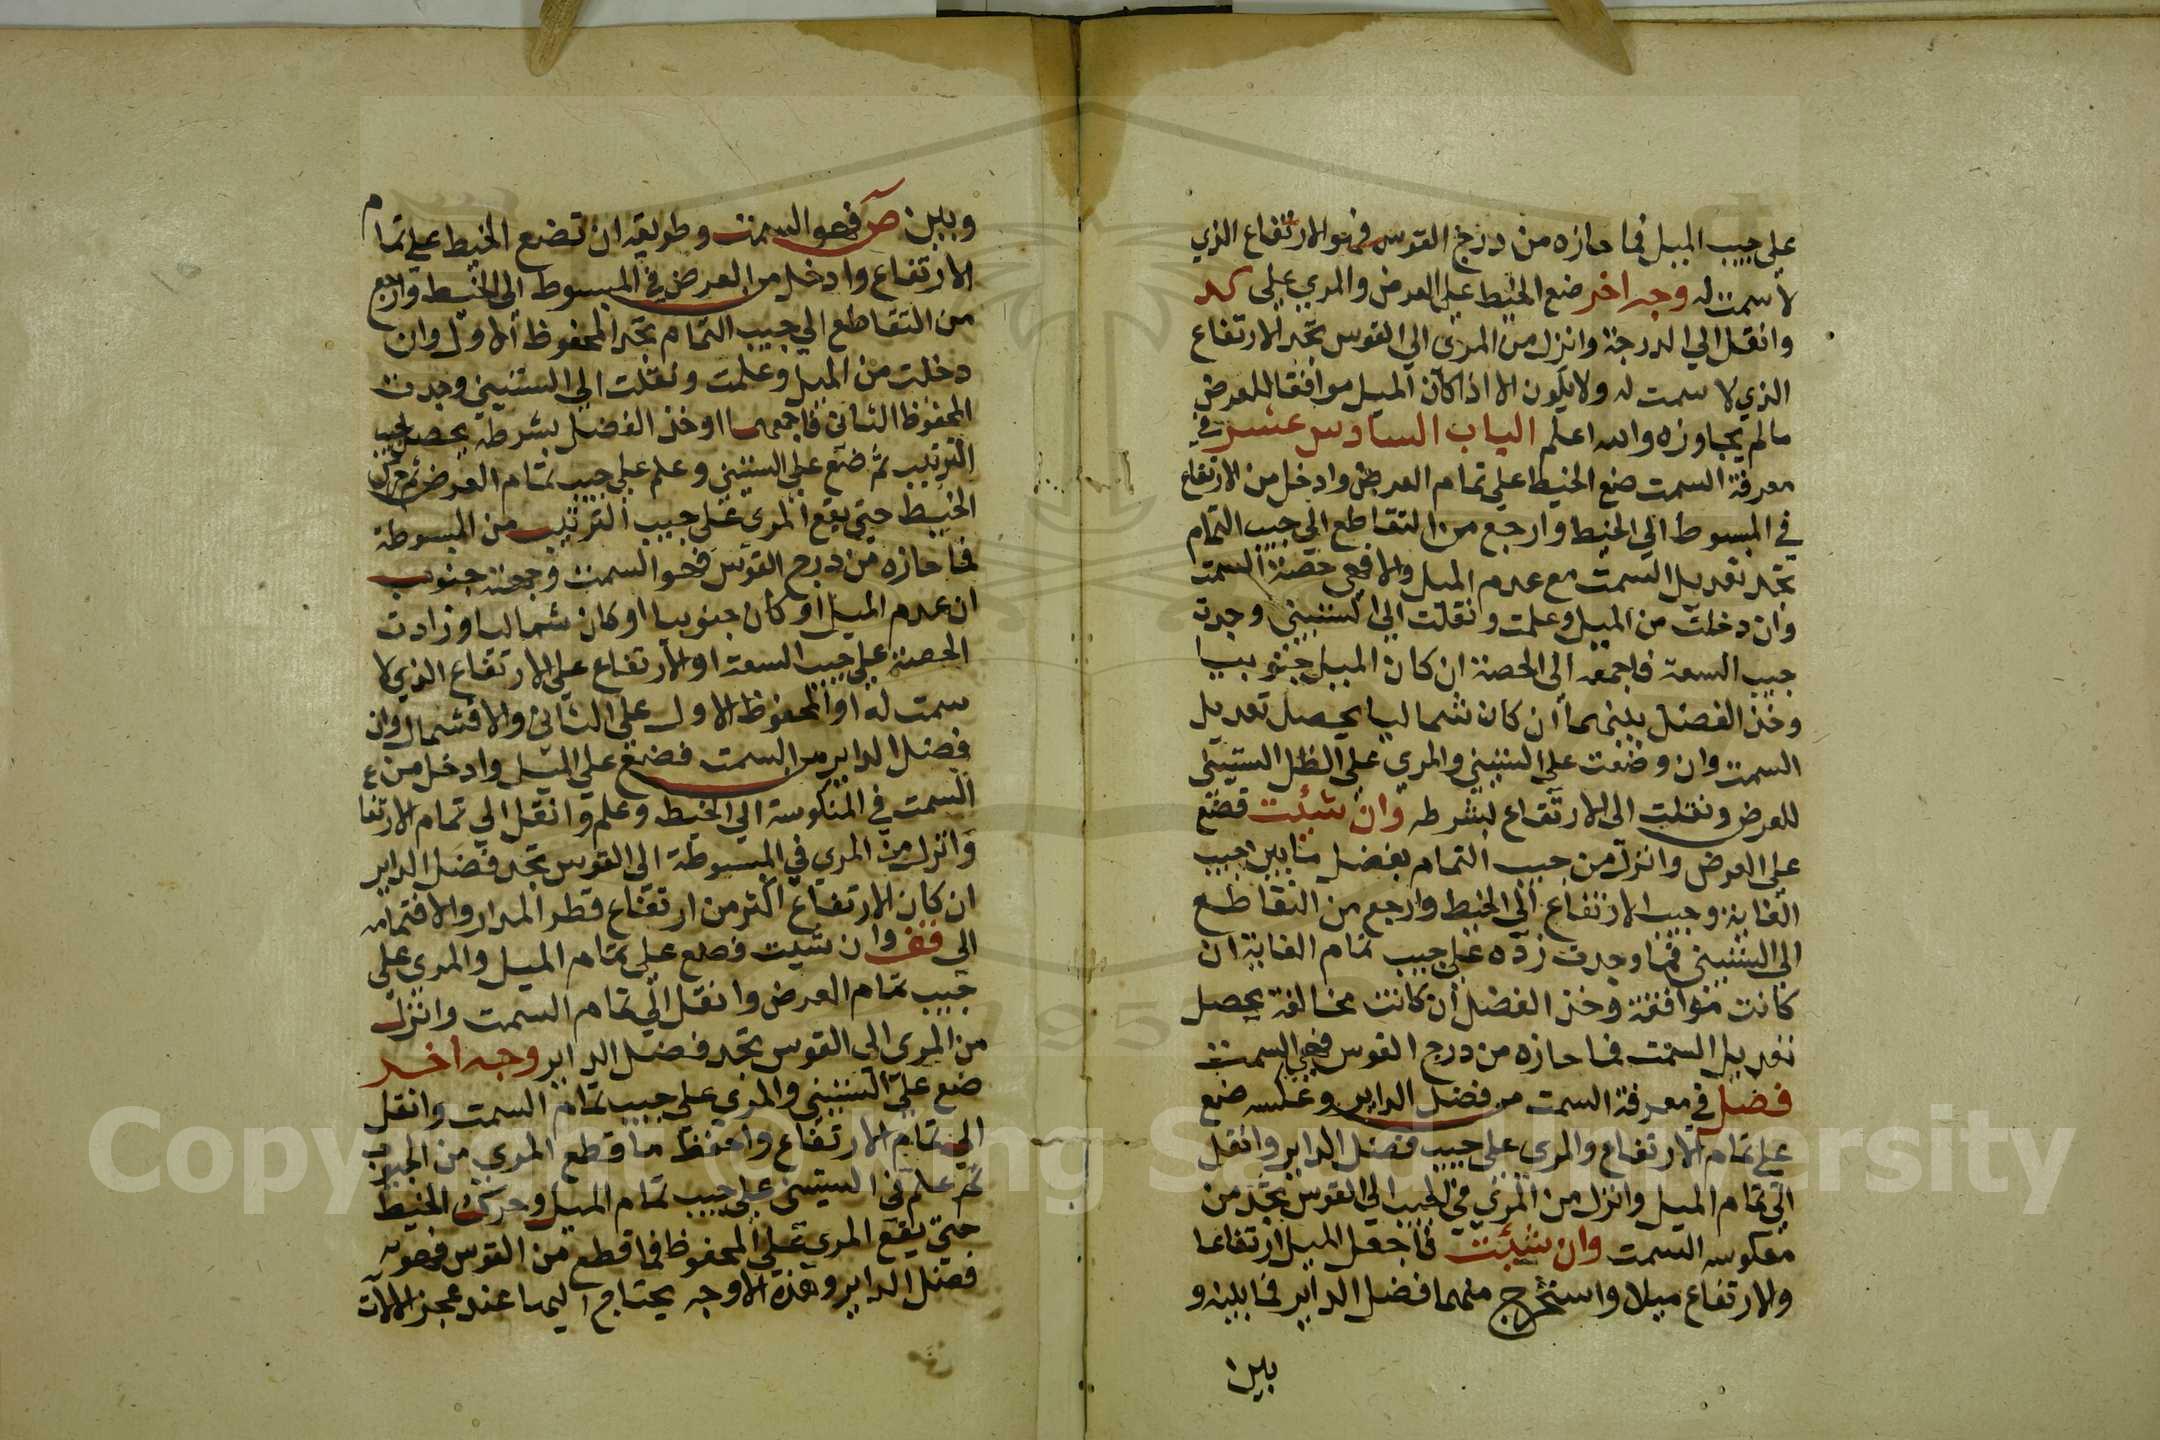 على جيب الميل فما حازه من درج القوس فهو الارتفاع الذي
لا سمت له وجه اخر ضع الخيط على العرض والمري على كد
وانقل الي الدرجة وانزل من المرى الي القوس تجد الارتفاع
الذي لا سمت له ولا يكون الا اذا كان الميل موافقا للعرض
مالم يجاوزه والله اعلم الباب السادس عشر في
معرفة السمت ضع الخيط علي تمام العرض وادخل من الارتفاع
في المبسوط الي الخيط وارجع من التقاطع الي جيب التمام
تجد تعديل السمت مع عدم الميل والا فهي حصة السمت
وان دخلت من الميل وعلمت ونقلت الي الستيني وجدت
جيب السعة فاجمعه الى الحصة ان كان الميل جنوبيا
وخذ الفضل بينهما ان كان شماليا يحصل تعديل
السمت وان وضعت على الستيني والمري على الظل الستيني
للعرض ونقلت الى الارتفاع بشرطه وان شيئت فضع
على العرض وانزل من جيب التمام بفضل ما بين جيب
الغاية وجيب الارتفاع الى الخيط وارجع من التقاطع
الى الستيني فما وجدت زده على جيب تمام الغاية ان
كانت موافقة وخذ الفضل ان كانت مخالفة يحصل
تعديل السمت فما حازه من درج القوس فهي السمت
فصل في معرفة السمت من فضل الداير وعكسه ضع
على تمام الارتفاع والمرى على جيب فضل الداير وانقل
الى تمام الميل وانزل من المري في الجيب الي القوس تجد من
معكوسه السمت وان شيئت فاجعل الميل ارتفاعا
والارتفاع ميلا واستخرج منهما فضل الداير فما بينه و
بين
وبين ص فهو السمت وطريقه ان تضع الخيط على تمام
الارتفاع وادخل من العرض في المبسوط الى الخيط وارجع
من التقاطع الي جيب التمام تجد المحفوظ الاول وان
دخلت من الميل وعلمت ونقلت الي الستيني وجدت
المحفوظ الثاني فاجمعهما او خذ الفضل بشرطه يحصل جيب
الترتيب ثم ضع على الستيني وعلم على جيب تمام العرض ثم حرك
الخيط حتى يقع المرى على جيب الترتيب من المبسوطة
فما حازه من درج القوس فهو السمت وجهته جنوب
ان عدم الميل او كان جنوبيا او كان شماليا وزادت
الحصة على جيب السعة او الارتفاع على الارتفاع الذي لا
سمت له او المحفوظ الاول على الثاني والا فشمال وان
فضل الداير من السمت فضع على الميل وادخل من
السمت في المنكوسة الي الخيط وعلم وانقل الي تمام الارتفاع
وانزل من المري في المبسوطة الى القوس تجد فضل الداير
ان كان الارتفاع اكثر من ارتفاع قطر المدار والا فتمامه
الى قف وان شيت فضع على تمام الميل والمري على
جيب تمام العرض وانقل الى تمام السمت وانزل
من المرى الي القوس تجد فضل الداير وجه اخر
ضع على الستيني والمري على جيب تمام السمت وانقل
الي تمام الارتفاع واحفظ ما قطع المري من الجيوب
ثم علم في الستيني على جيب تمام الميل وحرك الخيط
حتى يقع المري على المحفوظ فما قطع من القوس فهو
فضل الداير وهذه الاوجه يحتاج اليها عند عجز الالات